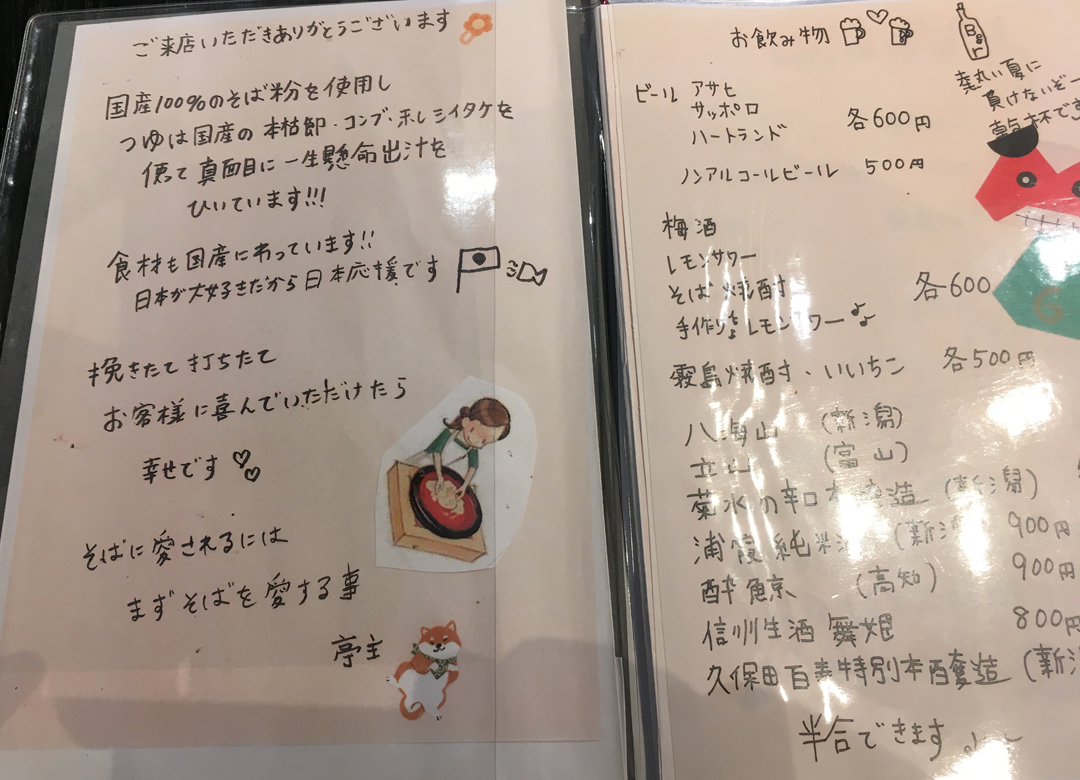 ご来店いただきありがとうございます
国産100%のそば粉を使用し
つゆは国産の 本枯節・コンブ・干しシイタケを
使って 真面目に 一生懸命出汁を
ひいています!!!
食材も国産にこだわっています!!
日本が大好きだから日本応援です
挽きたて 打ちたて
お客様に喜んでいただけたら
幸せです
そばに愛されるには
まずそばを愛する事
亭主
お飲み物
ビール アサヒ
サッポロ 各600円
ハートランド
ノンアルコールビール 500円
梅酒
レモンサワー
そば焼酎 各600
手作り レモンサワー
霧島焼酎・いいちこ 各500円
八海山 (新潟)
立山 (富山)
菊水の辛口本醸造 (新潟)
浦霞純米酒 900円
酔鯨 (高知) 900円
信州生酒 舞姫 800円
久保田百寿特別本醸造 (新潟
半合できます
暑い夏に
負けないぞー